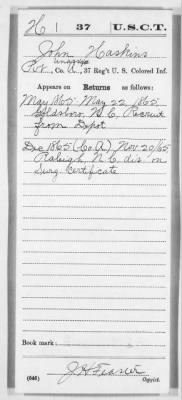 H | 37 | U.S.C.T.
John Haskins
unassgd
Pvt., Co. U., 37 Reg't U. S. Colored Inf.
Appears on Returns as follows:
May 1865. May 22 1865
Goldsboro, N. C. Recruit
from Depot
Dec 1865 (Co A) Nov. 20/65
Raleigh, N. C. dis. on
Surg. Certficate
Book mark:
J H Feaster
(646) Copyist.